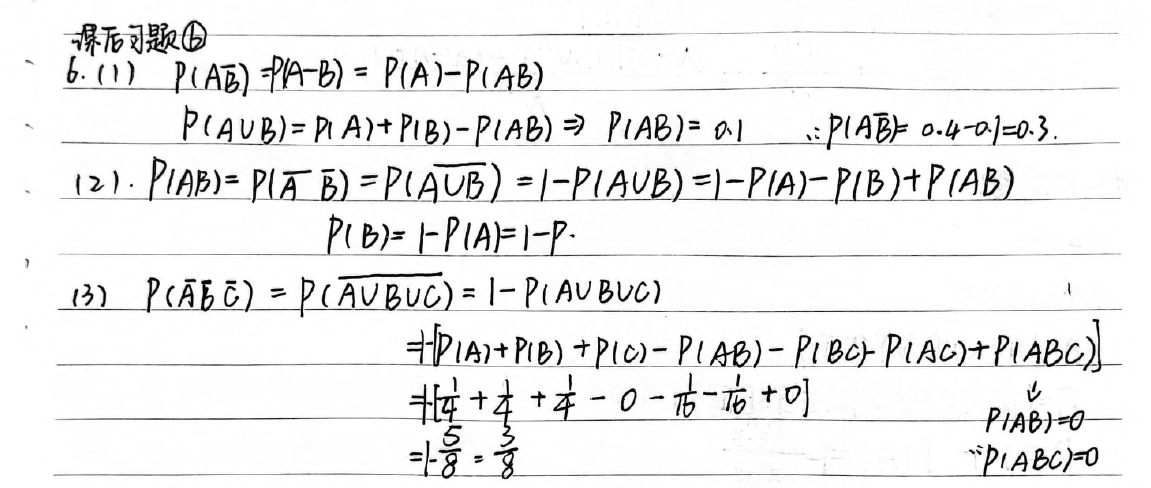 课后习题⑥
6.(1) P(AB̅)=P(A-B)=P(A)-P(AB)
P(A∪B)=P(A)+P(B)-P(AB)⇒P(AB)=0.1 ∴P(AB̅)=0.4-0.1=0.3.
(2). P(AB)=P(A̅ B̅)=P(\overline{A∪B})=1-P(A∪B)=1-P(A)-P(B)+P(AB)
P(B)=1-P(A)=1-P.
(3) P(A̅B̅C̅)=P(\overline{A∪B∪C})=1-P(A∪B∪C)
=1-[P(A)+P(B)+P(C)-P(AB)-P(BC)-P(AC)+P(ABC)]
=1-[1/4+1/4+1/4-0-1/16-1/16+0]
↓
P(AB)=0
=1-5/8=3/8
∴P(ABC)=0